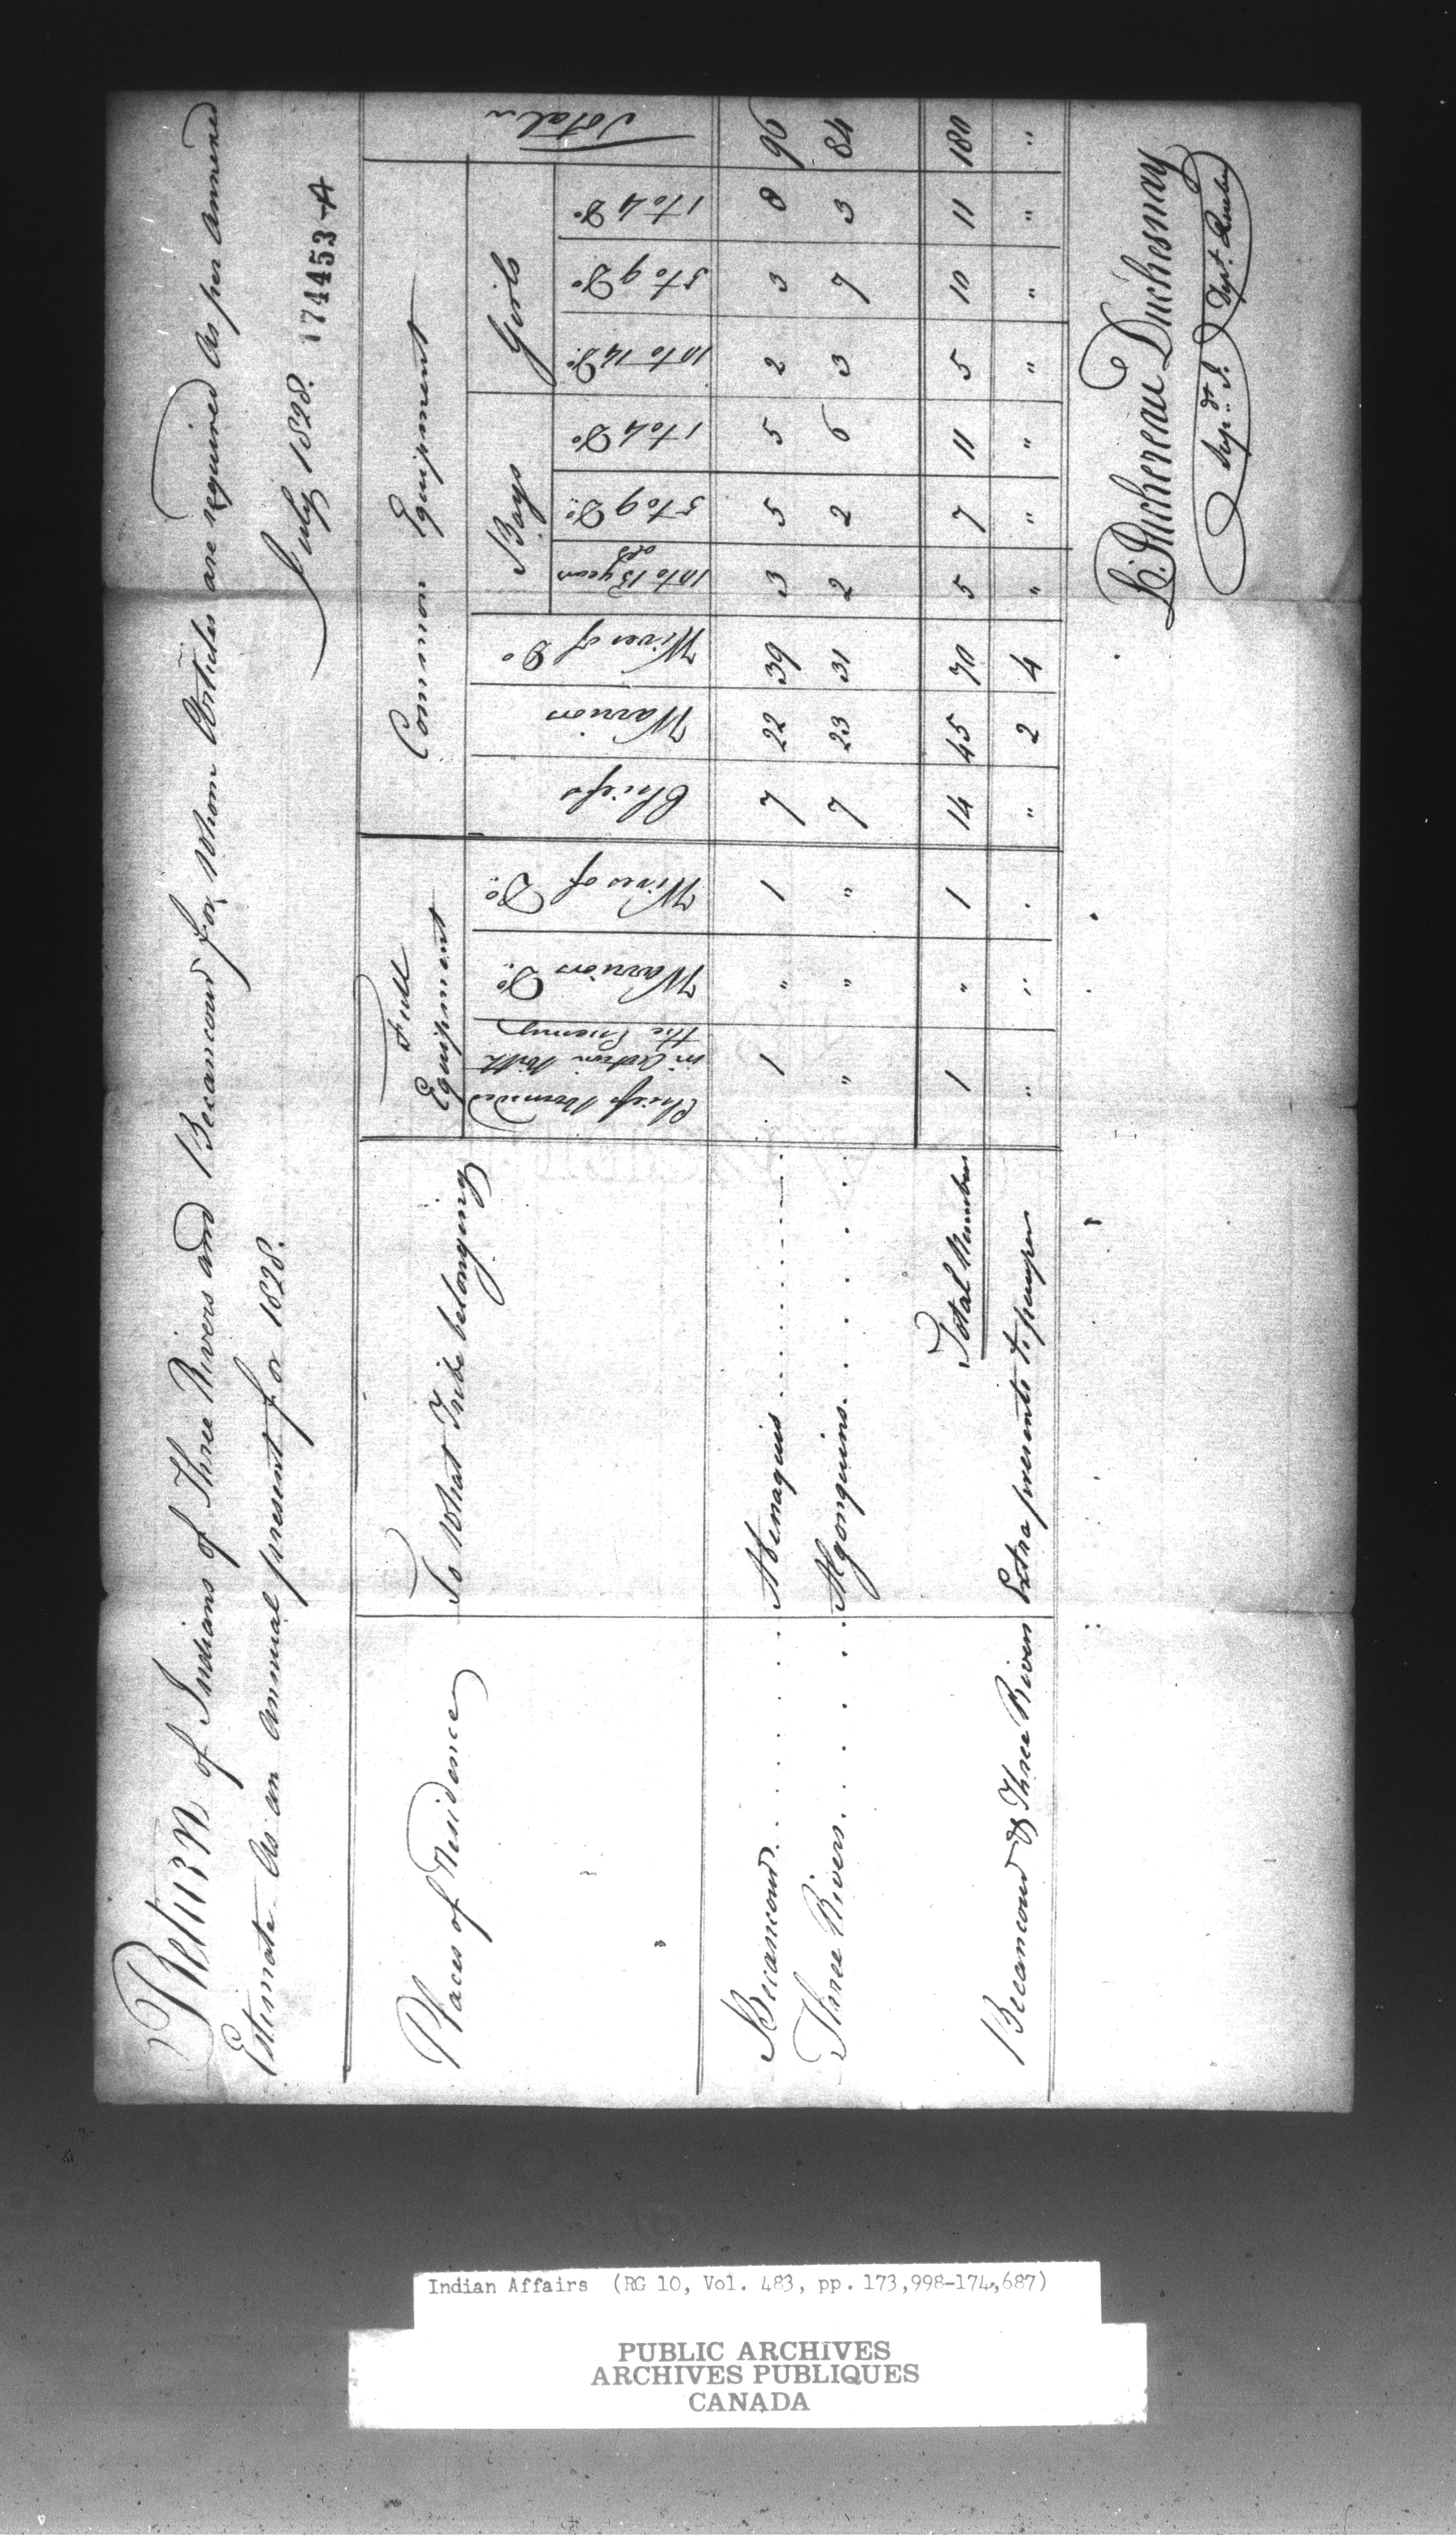 Return of Indians of Three Rivers and Becancour for whom Articles are required as per annexed
Estimate as an annual present for 1828.
July 1828.
174453-A
Places of Residence
To what Tribe belonging
Full Equipment
Common Equipment
Total
Boys
Girls
Chiefs wounded in Action with the Enemy
Warriors Do.
Wives of Do.
Chiefs
Warriors
Wives of Do
10 to 15 years old
5 to 9 Do.
1 to 4 Do
10 to 14 Do.
5 to 9 Do
1 to 4 Do
Becancour . . . . . . . Abenaquis . . . . . . 1 " 1 7 22 39 3 5 5 2 3 8 96
Three Rivers. . . . . . Algonquins. . . . . . " " " 7 23 31 2 2 6 3 7 3 84
Total Numbers 1 " 1 14 45 70 5 7 11 5 10 11 180
Becancour & Three Rivers Extra presents to pauper " " " " 2 4 " " " " " " "
L. Juchereau Duchesnay
Sup.dt I. Dept. Quebec
Indian Affairs (RG 10, Vol. 483, pp. 173,998-174,687)
PUBLIC ARCHIVES
ARCHIVES PUBLIQUES
CANADA